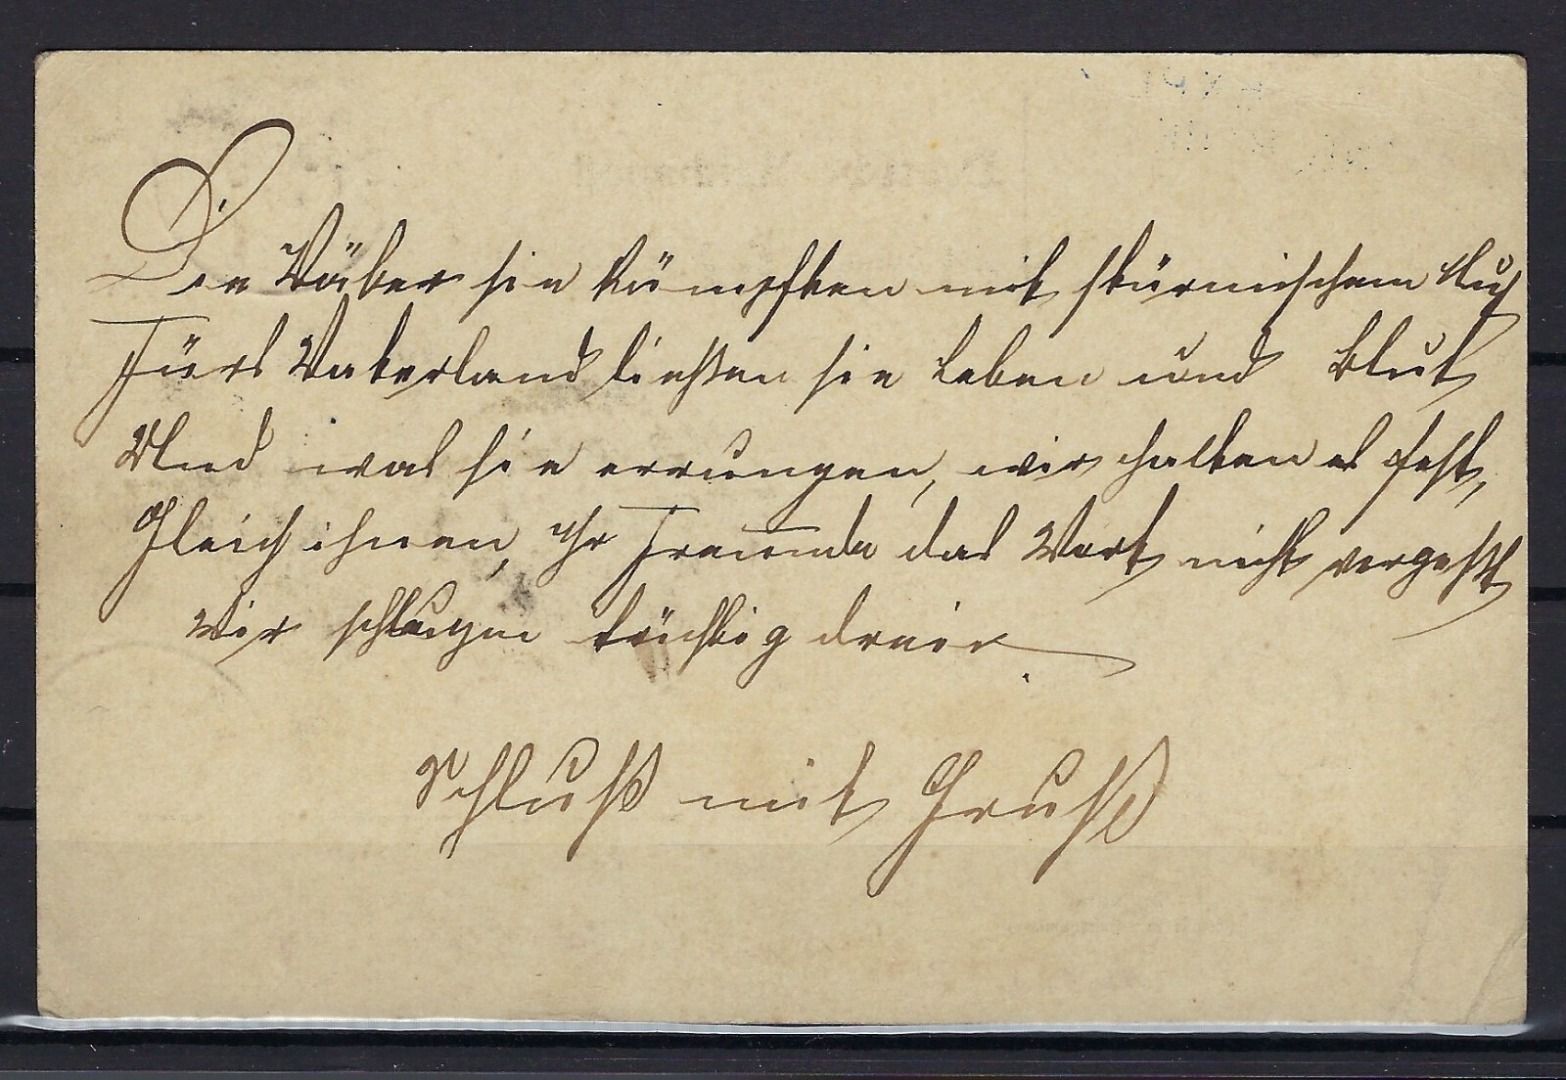 Die Väter sie kämpften mit stürmischem Mut
Fürs Vaterland ließen sie Leben und Blut
Und was sie errungen, wir halten es fest,
Gleich ihnen, Ihr Freunde das Wort nicht vergeßt
Wir schlugen tüchtig drein
Schluß mit Gruß